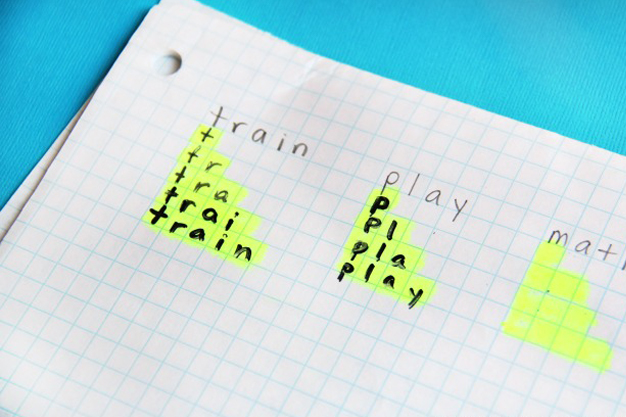 train
t
tr
tra
trai
train
play
p
pl
pla
play